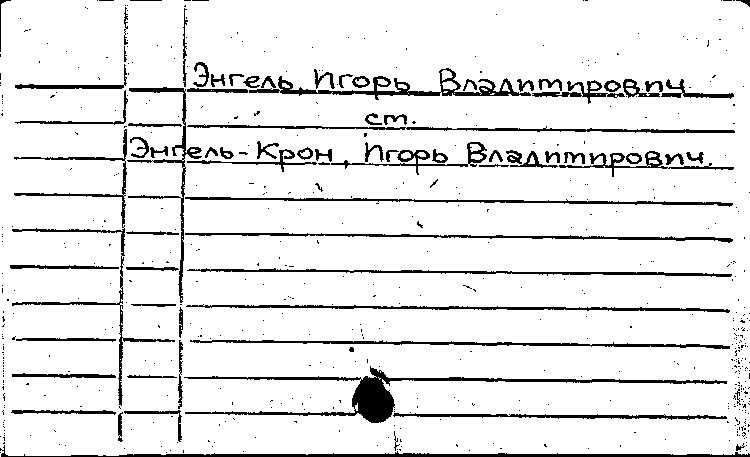 Энгель, Игорь Владимирович
ст.
Энгель-Крон, Игорь Владимирович.